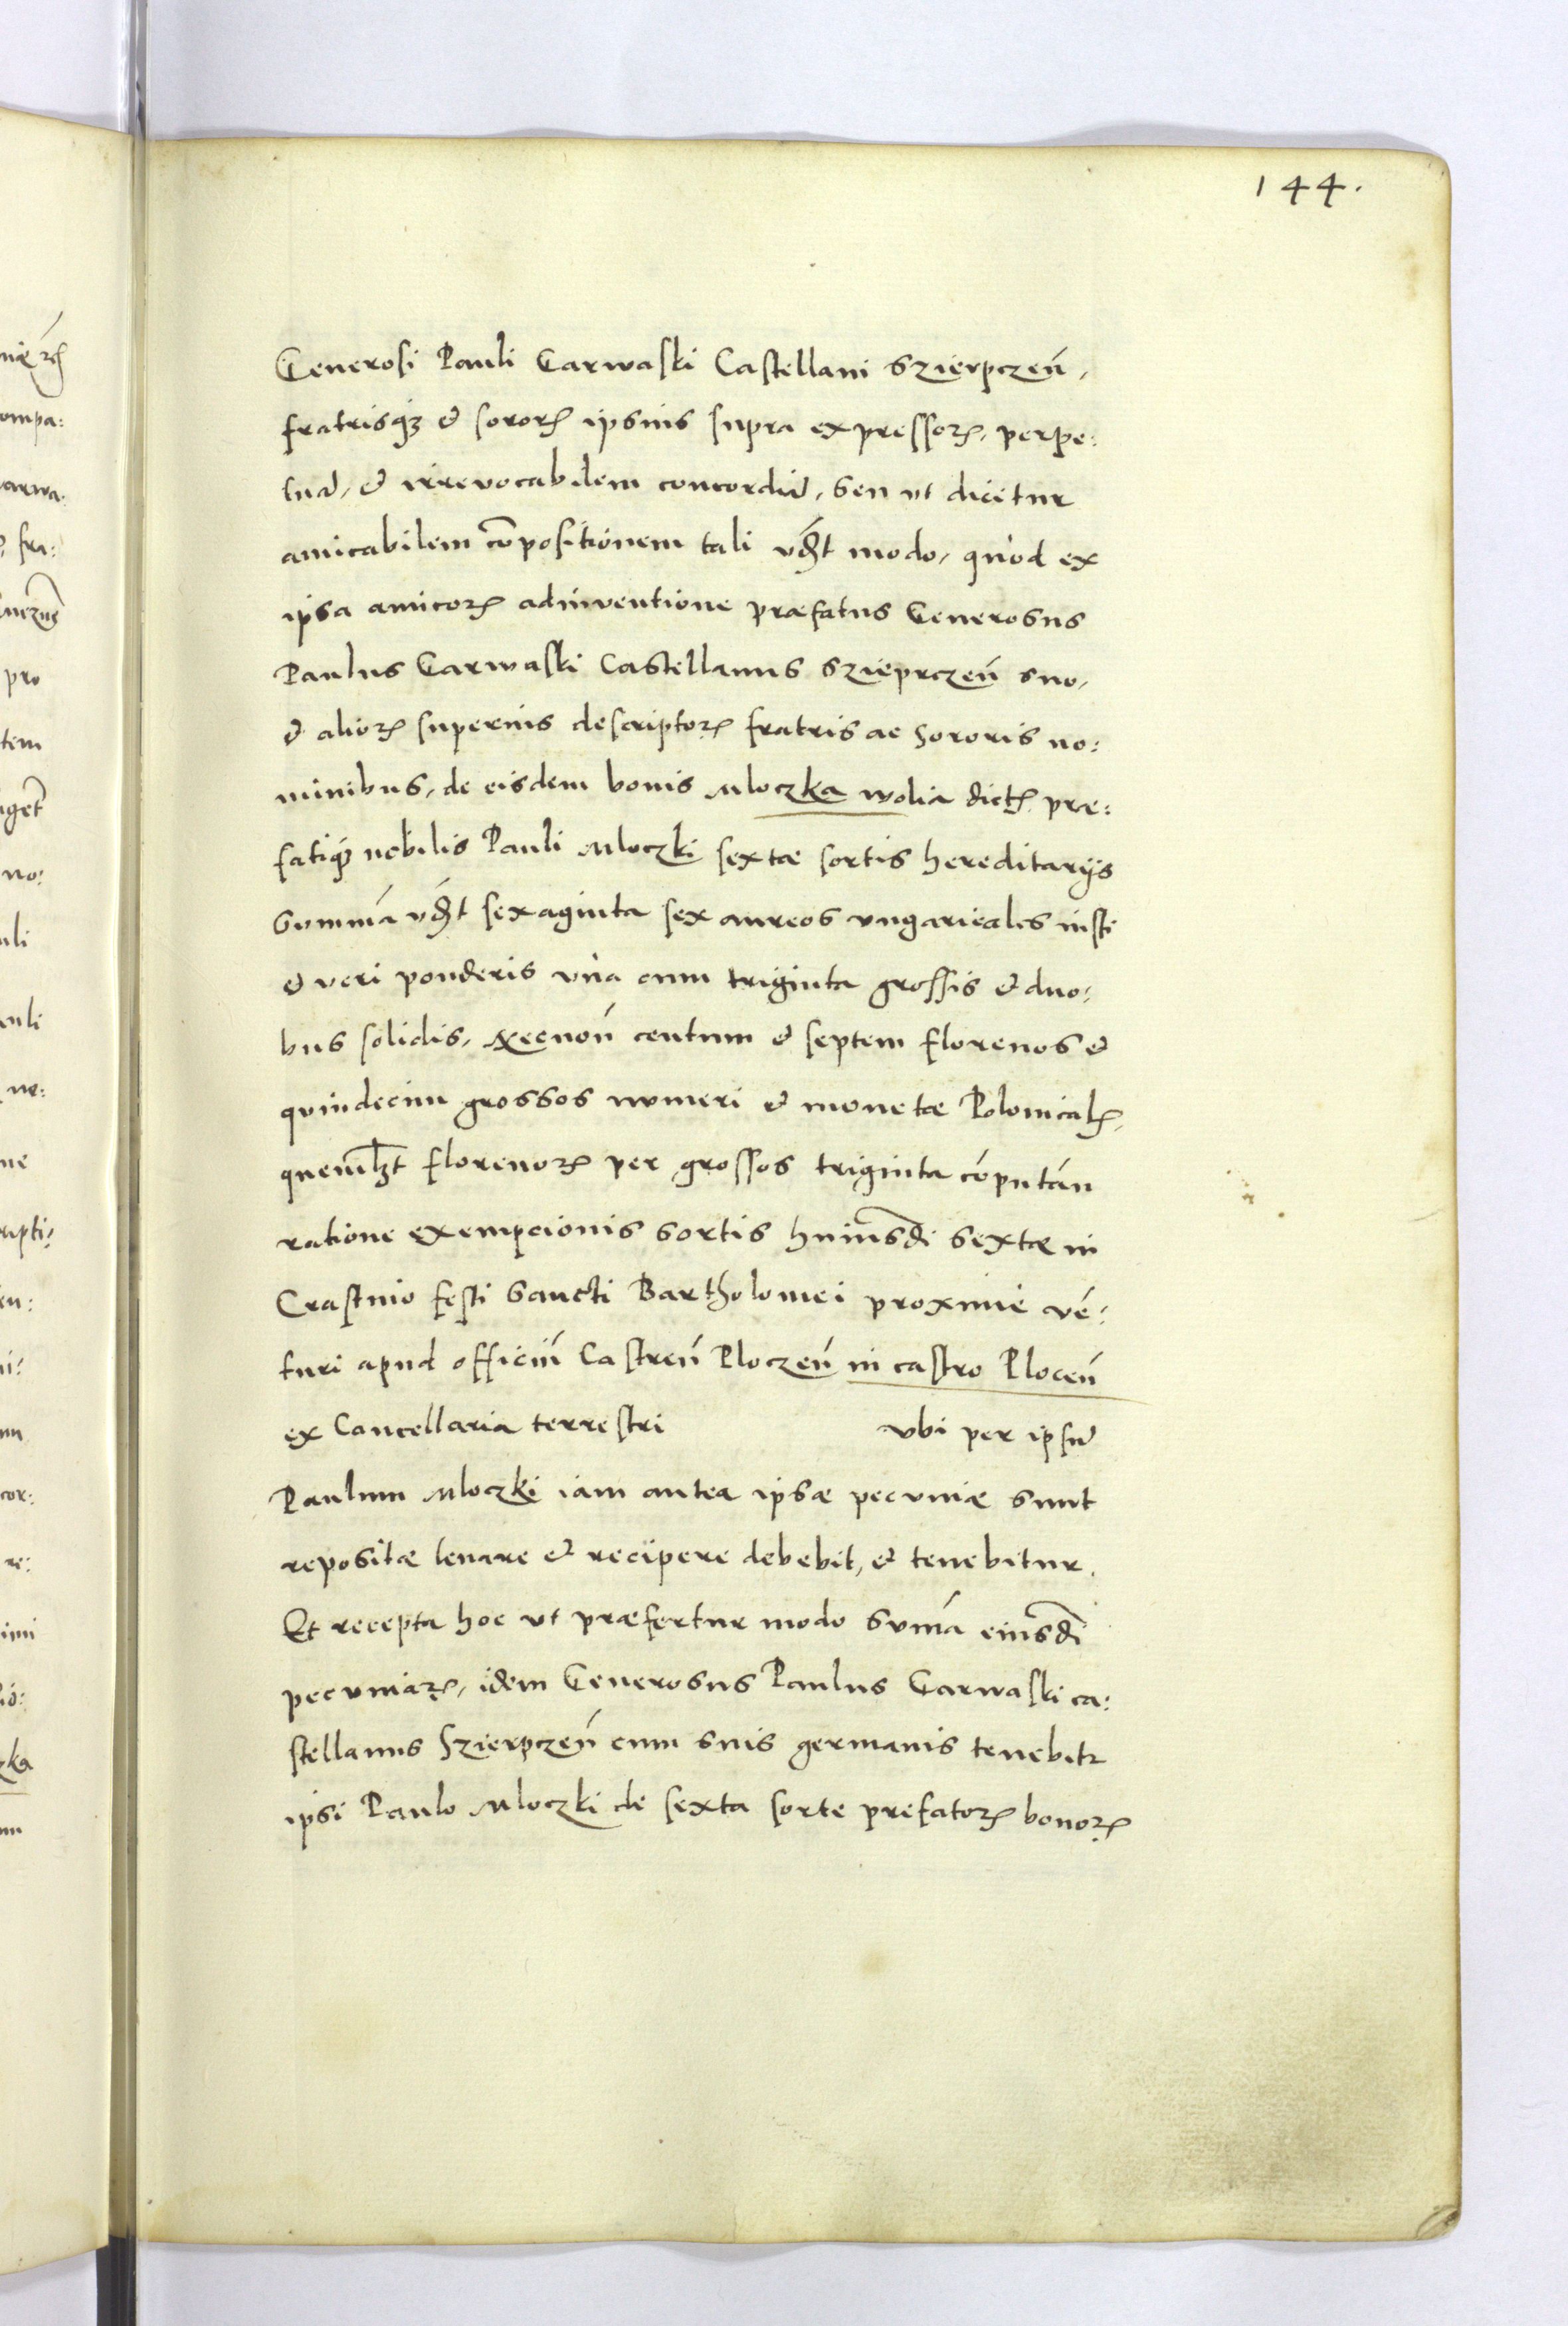 144.
Generosi Pauli Garwaski Castellani Szierpczeń,
fratrisq́ꝫ & sororꝭ ipsius supra expressorꝭ, perpe:
tuā, & irrevocabilem concordiā, seu vt dicitur
amicabilem cōpositionem tali vꝫt modo, quòd ex
ipsa amicorꝭ adinventione præfatus Generosus
Paulus Garwaski Castellanus Szieprczeń suo,
& aliorꝭ superius descriptorꝭ fratris ac Sororis no:
minibus, de eisdem bonis Mloczka wolia dictꝭ præ:
fatiq́ꝫ nobilis Pauli Mloczki sextæ sortis hereditarijs
Summā vꝫt sexaginta sex aureos vngaricales iusti
& veri ponderis vnà cum triginta grossis & duo:
bus solidis, Necnoń centum & septem florenos &
quindecim grossos numeri & monetæ Polonicalꝭ,
quemlꝫt florenorꝭ per grossos triginta cōputāń
ratione exempcionis sortis huiusd̄i sextæ in
Crastino festi Sancti Bartholomei proximè vē:
turi apud officiū Castreń Ploczeń in castro Ploceń
ex Cancellaria terrestri vbi per ipsū
Paulum Mloczki iam antea ipsæ pecuniæ sunt
repositæ leuare & recipere debebit, & tenebitur.
Et recepta hoc vt præfertur modo sum̄a eiusd̄i
pecuniarꝭ, idem Generosus Paulus Garwaski ca:
stellanus Szierpczeń cum suis germanis tenebitꝛ
ipsi Paulo Mloczki de sexta sorte prefatorꝭ bonorꝭ